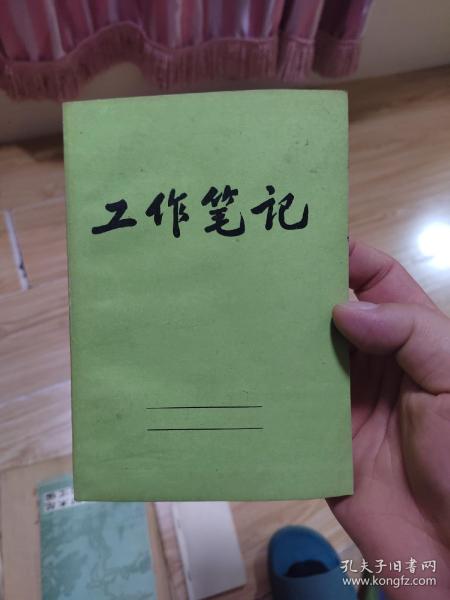 工作笔记
孔夫子旧书网
www.kongfz.com